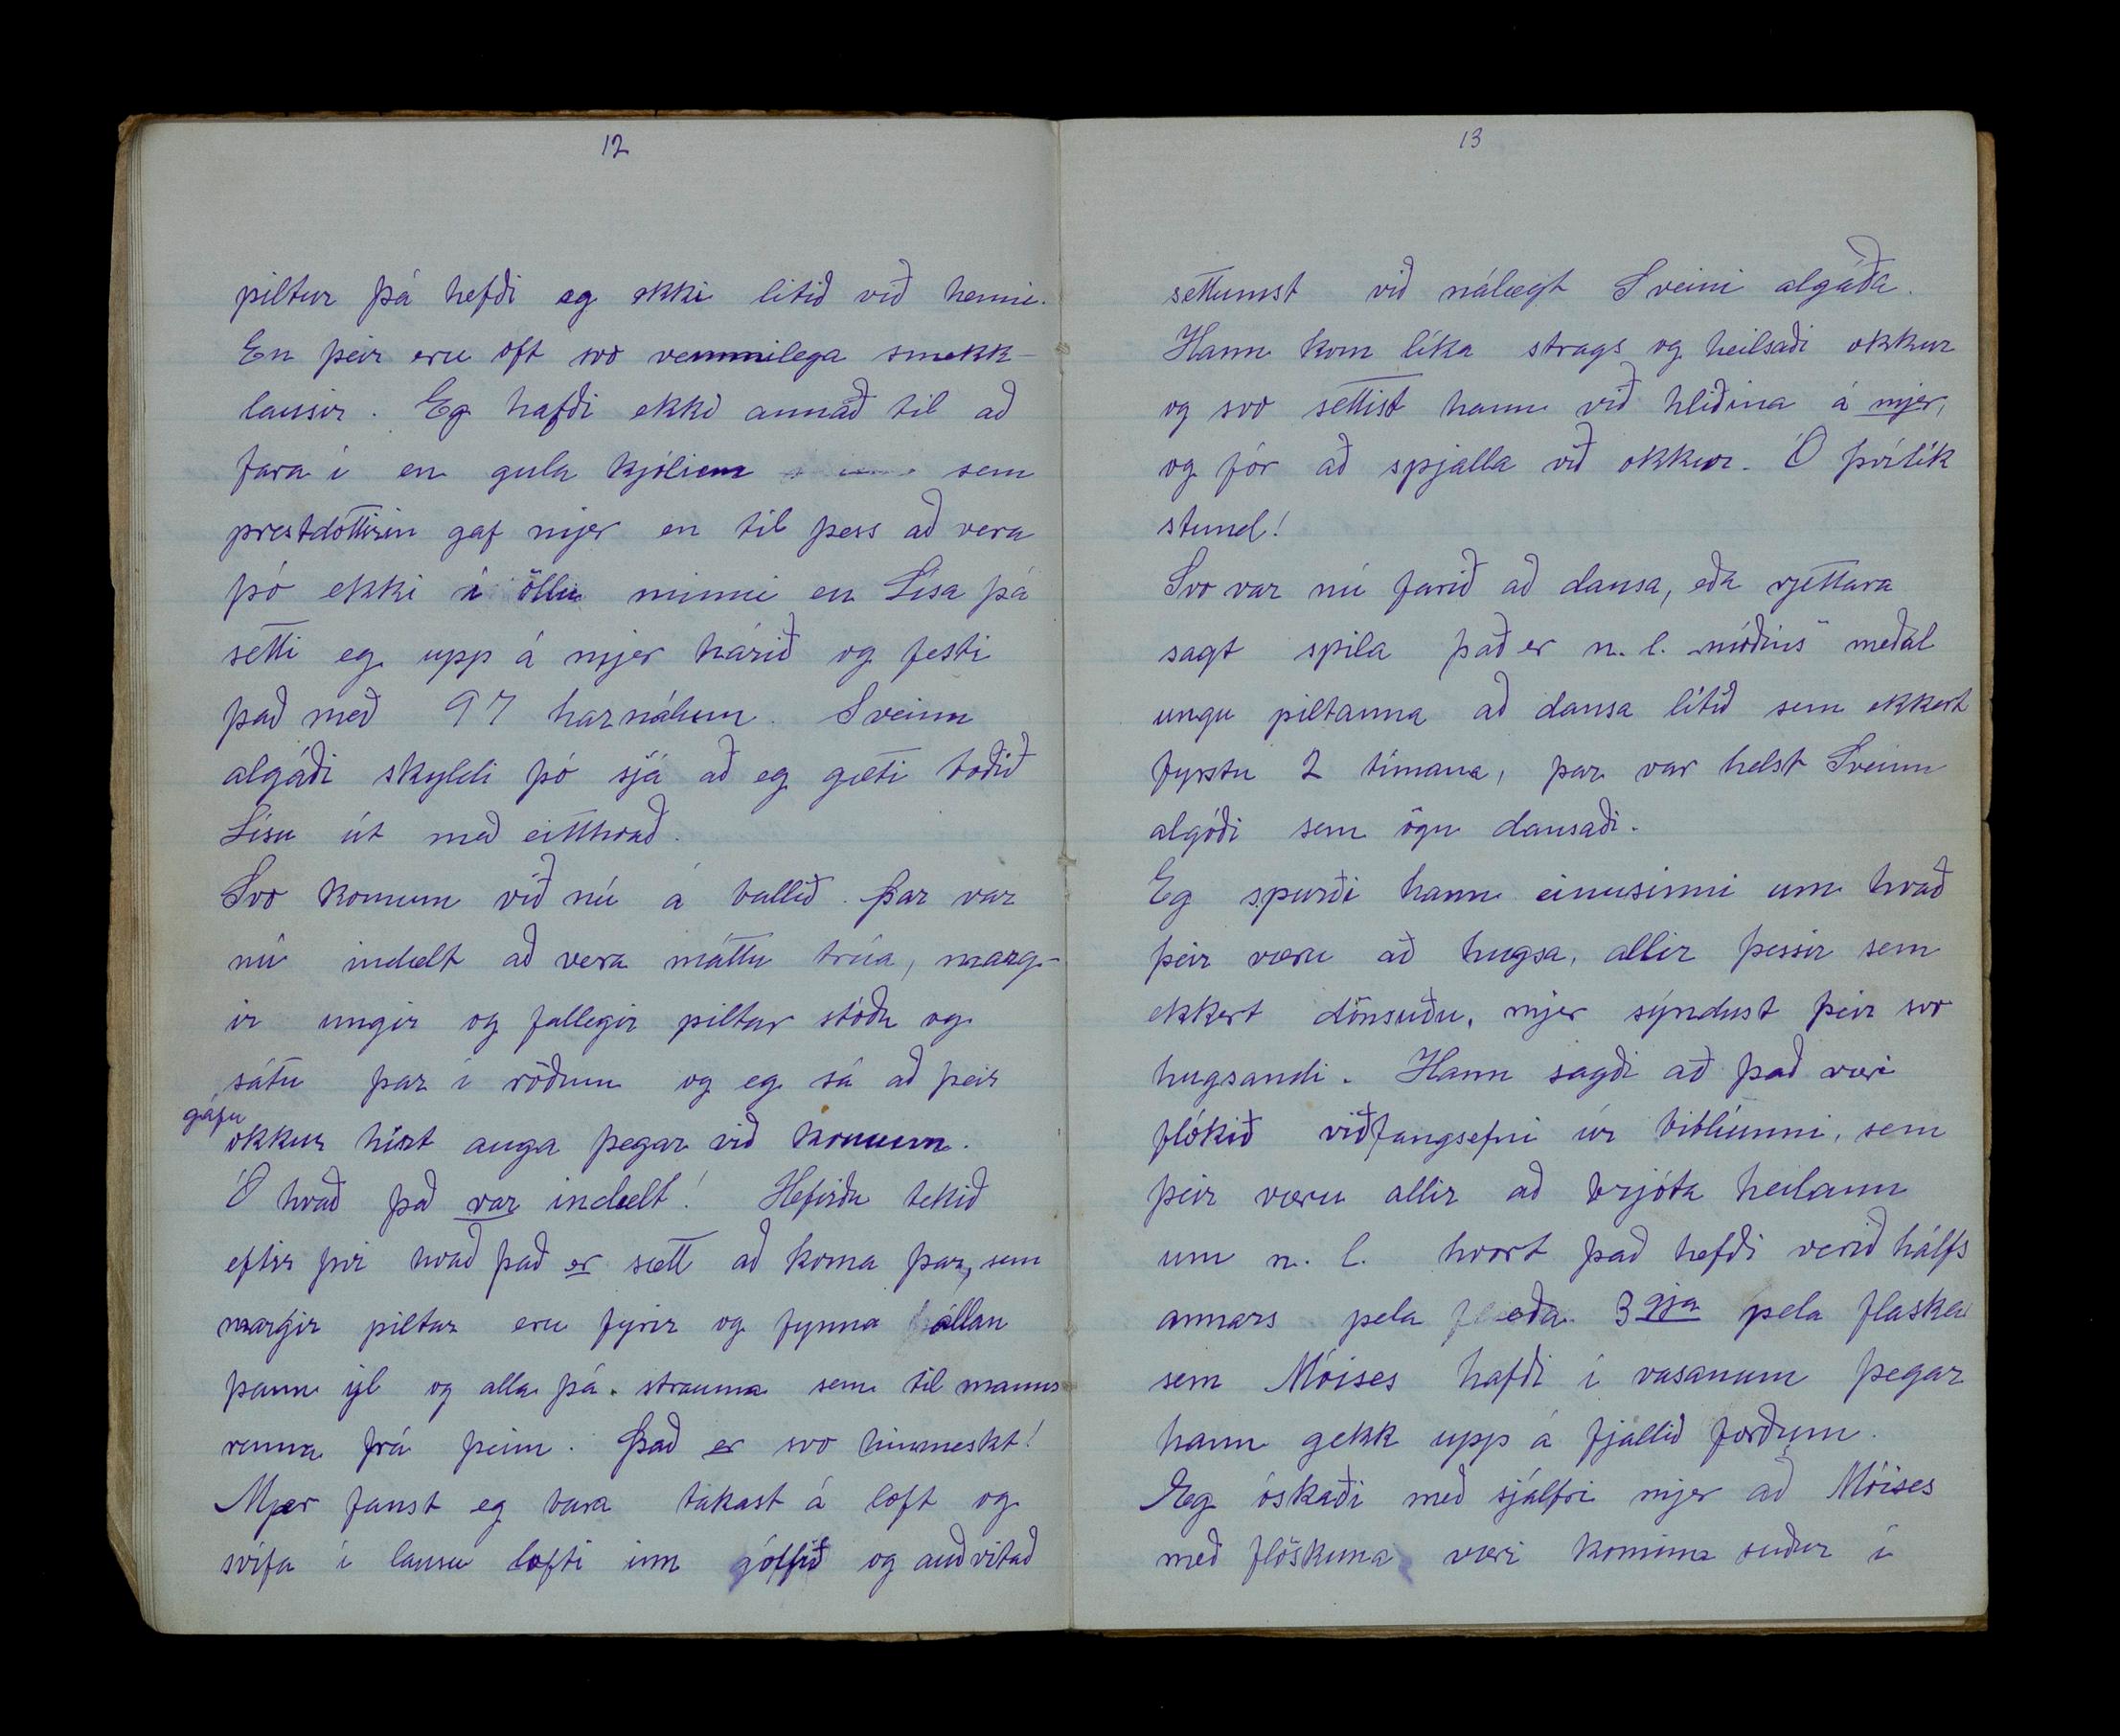 12
piltur þá hefði eg ekki litið við henni.
En þeir eru oft svo vemmilega smekk-
lausir. Eg hafði ekki annað til að
fara í en gula kjólinn sem
prestdóttirin gaf mjer en til þess að vera
þó ekki í öllu minni en Lísa þá
setti eg upp á mjer hárið og festi
það með 97 harnálum. Sveinn
algáði skyldi þó sjá að eg gæti boðið
Lísu út með eitthvað.
Svo komum við nú á ballið. Þar var
nú indælt að vera máttu trúa, marg-
ir ungir og fallegir piltar stóðu og
sátu þar í röðum og eg sá að þeir
gáfu
okkur hírt auga þegar við komum.
Ó hvað það var indælt! Hefirðu tekið
eftir því hvað það er sætt að koma þar, sem
margir piltar eru fyrir og fynna allan
þann yl og alla þá strauma sem til manns
renna frá þeim. Það er svo himneskt!
Mjer fanst eg bara takast á loft og
svífa í lausu lofti inn gólfið og auðvitað
13
settumst við nálægt Sveini algáða.
Hann kom líka strags og heilsaði okkur
og svo settist hann við hliðina á mjer,
og fór að spjalla við okkur. Ó þvílík
stund!
Svo var nú farið að dansa, eða rjettara
sagt spila það er n. l. „móðins“ meðal
ungu piltanna að dansa lítið sem ekkert
fyrstu 2 tímana, þar var helst Sveinn
algóði sem ögn dansaði.
Eg spurði hann einusinni um hvað
þeir væru að hugsa, allir þessir sem
ekkert dönsuðu, mjer sýndust þeir svo
hugsandi. Hann sagði að það væri
flókið viðfangsefni úr biblíunni, sem
þeir væru allir að brjóta heilann
um n. l. hvort það hefði verið hálfs
annars pela eða 3gja pela flaska
sem Móises hafði í vasanum þegar
hann gekk upp á fjallið forðum.
Eg óskaði með sjálfri mjer að Móises
með flöskuna væri kominn suður í